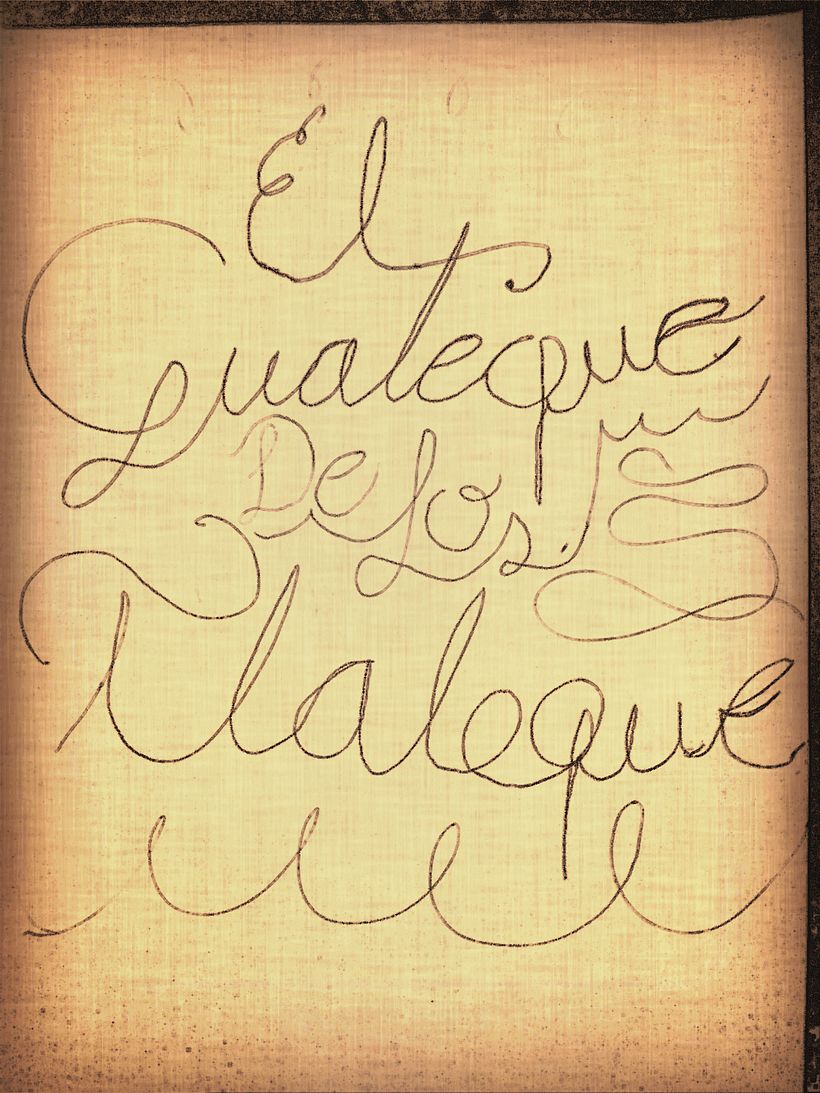 El
Guateque
De Los
Tlaleque